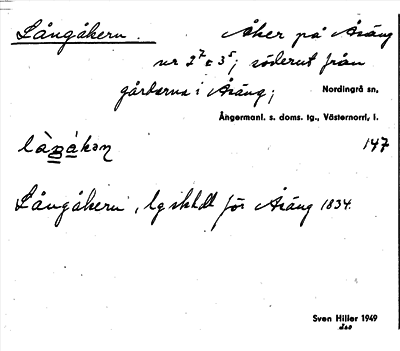 Långåkern. Åker på Åsäng
nr 2⁷ o 3⁵; söderut från
gårdarna i Åsäng; Nordingrå sn,
Ångermanl. s. doms. tg., Västernorrl, l.
làŋákən 147
Långåkern, lg skhdl för Åsäng 1834.
Sven Hiller 1949